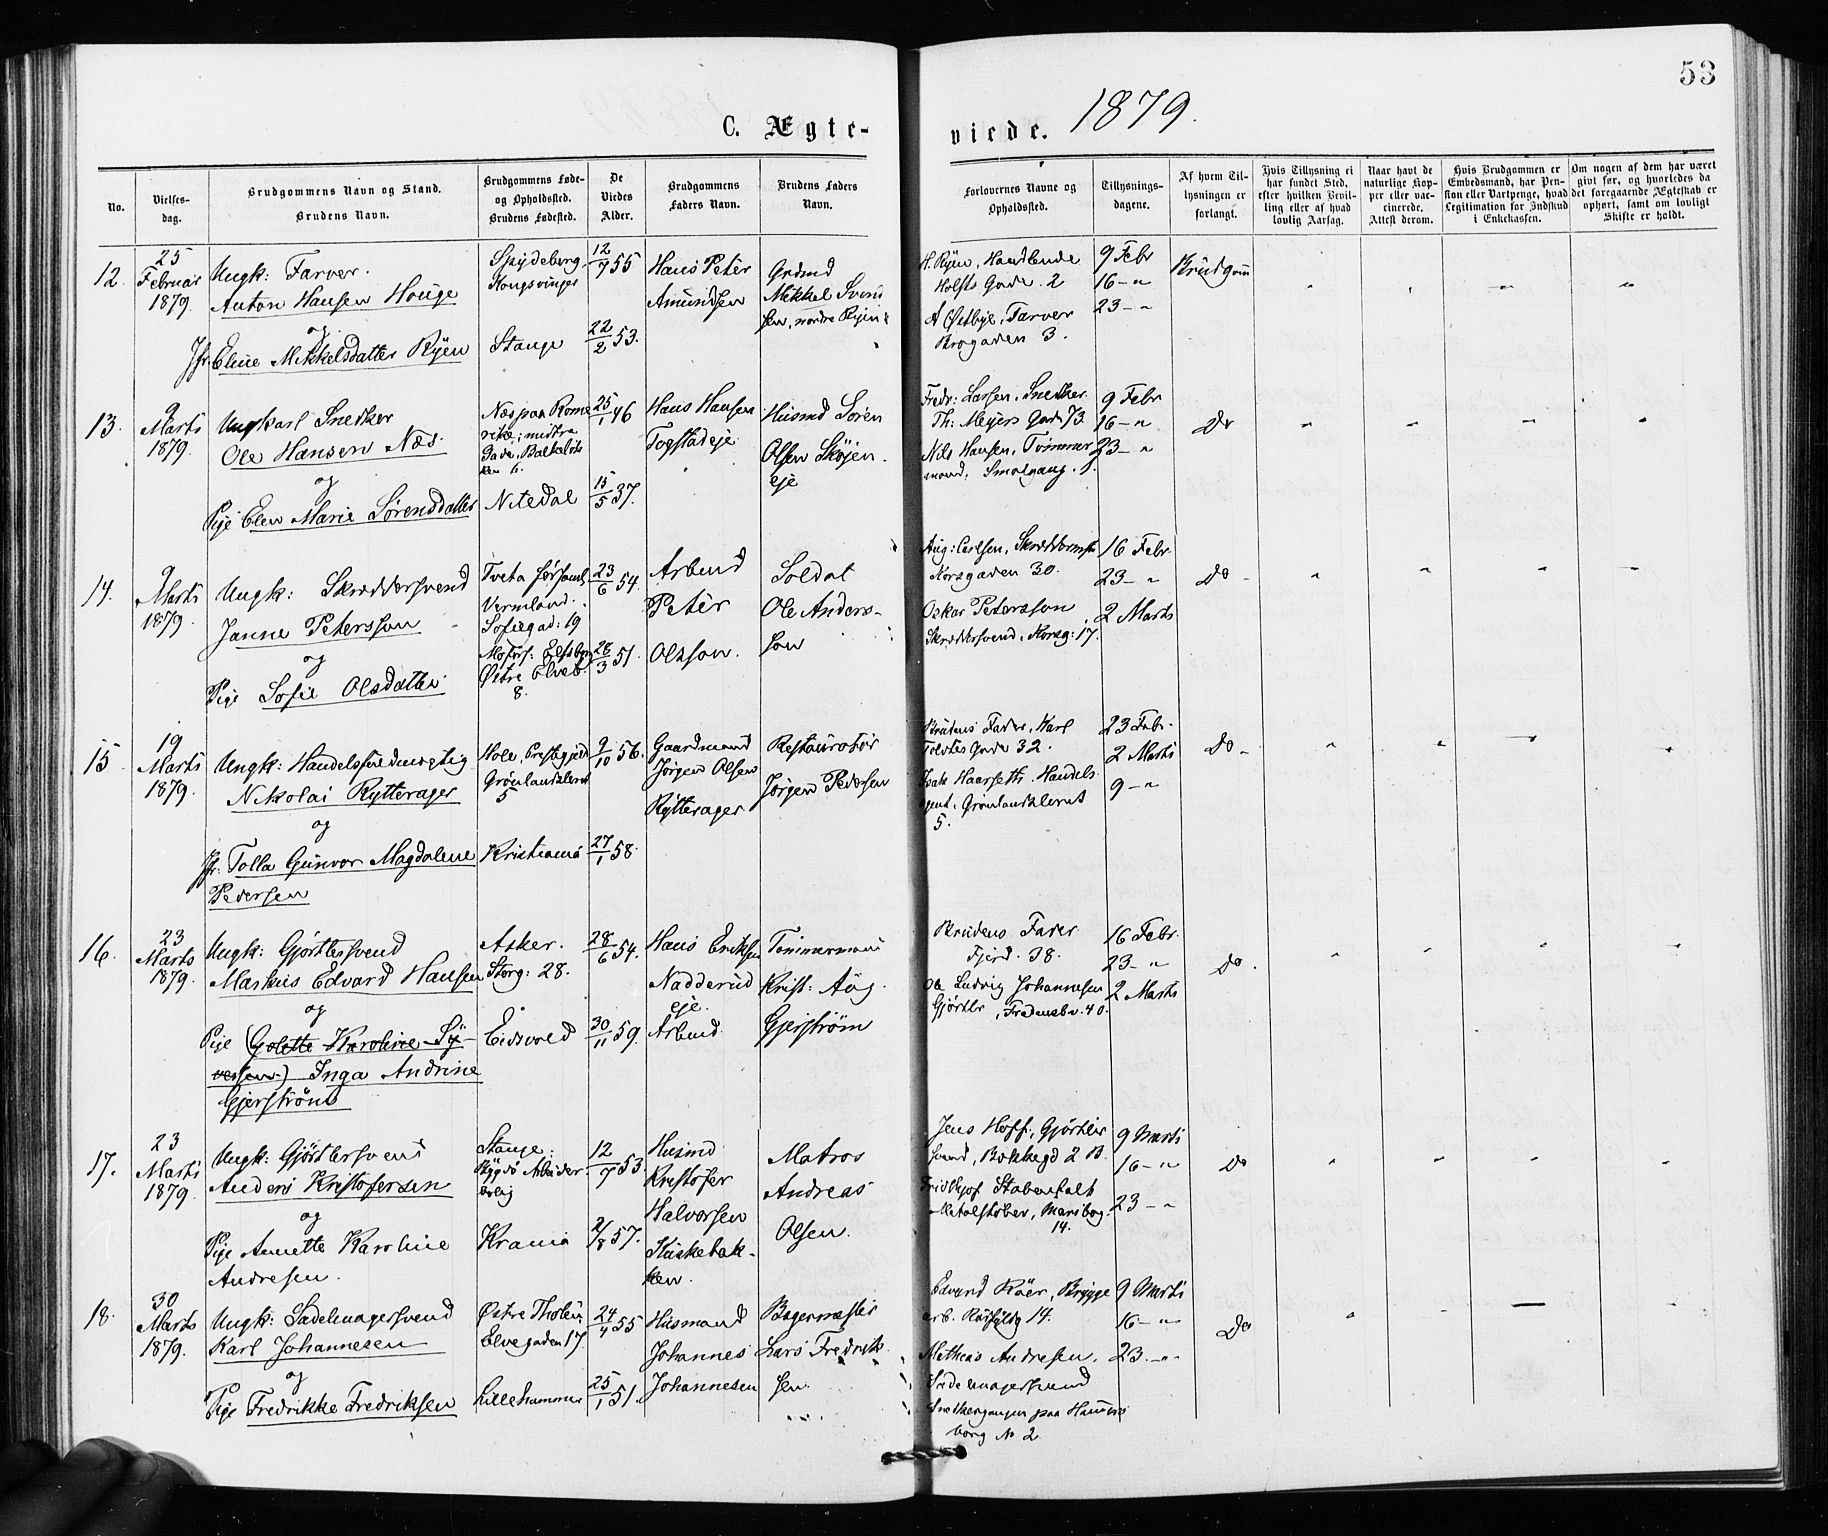 53
C. Ægte-
viede. 1879.
No.
Vielses-
dag.
Brudgommens Navn og Stand.
Brudens Navn.
Brudgommens Føde-
og Opholdssted.
Brudens Fødested.
De
Viedes
Alder.
Brudgommens
Faders Navn.
Brudens Faders
Navn.
Forlovernes Navne og
Opholdssted.
Tillysnings-
dagene.
Af hvem Til-
lysningen er
forlangt.
Hvis Tillysning ei
har fundet Sted,
efter hvilken Bevil-
ling eller af hvad
lovlig Aarsag.
Naar havt de
naturlige Kop-
per eller vac-
cinerede.
Attest derom.
Hvis Brudgommen er
Embedsmand, har Pen-
sion eller Vartpenge, hvad
Legitimation for Indskud
i Enkekassen.
Om nogen af dem har været
givt før, og hvorledes da
det foregaaende Ægteskab er
ophørt, samt om lovligt
Skifte er holdt.
12.
25
Februar
1879.
Ungk: Farver.
Anton Hansen Houge
og
Jfr. Eline Mikkelsdatter Ryen
Spydeberg
Kongsvinger
Stange
12/7 55
22/2 53.
Hans Peter
Amundsen
Grdmd
Mikkel Svend
sen, nordre Ryen
H. Ryen, Handlende
Holsts Gade. 2
A Østbye, Farver
Brogaden 3.
9 Febr
16 - "
23 - "
Brudgom
13.
9
Marts
1879.
Ungkarl Snedker
Ole Hansen Næs.
og
Pige Elen Marie Sørensdatter
Næs paa Rome
rike;
Nitedal
25/1 46
15/5 37.
Hans Hansen
Togstadeje
Husmd Sören
Olsen Skøjen
eje
Fredr: Larsen, Snedker
Th: Meyers Gade 73
Nils Hansen, Tømmer
mand, Smalgang. 1.
9 Febr
16 - "
23 - "
Do
14.
9
Marts
1879.
Ungk: Skræddersvend
Janne Petersson
og
Pige Sofie Olsdatter
Tveta
Vermland.
Sofiegad: 19
Østre Elveb.
8.
23/6 54.
28/3 51.
Arbmd
Peter
Olsson.
Soldat
Ole Anders-
son
Aug: Carlsen, Skræddermstr
Korsgaden 30.
Oskar Petersson
Skræddersvend, Korsg: 17.
16 Febr.
23 - "
2 Marts
Do -
15
19
Marts
1879.
Ungk: Handelsfuldmegtig
Nikolai Rytterager
og
Jfr: Tolla Gunvor Magdalene
Pedersen
Hole, Prestegjeld
Grønlandsleret
5
Kristiania
9/10 56.
27/1 58.
Gaardmand
Jörgen Olsen
Rytterager
Restauratør
Jörgen Pedersen
Brudens Fader, Karl
Toldbs Gade 32.
Isak Haarseth. Handels
agent, Grønlandsleret
5.
23 Febr.
2 Marts
9 - "
Do -
16.
23
Marts
1879.
Ungk: Gjørtlersvend
Markus Edvard Hansen
og
Pige (Golette Karoline Sy-
versen) Inga Andrine
Gjerström
Asker.
Storg: 28.
Eidsvold
28/6 54.
30/11 59.
Hans Eriksen
Nadderud
eje.
Arbmd.
Tømmermand
Krist: Aug.
Gjerström
Brudens Fader
Fjerd. 38.
Ole Ludvig Johannesen
Gjørtler, Fredensbr. 40.
16 Febr.
23 - "
2 Marts
Do.
17.
23
Marts
1879.
Ungk: Gjørtlersvend
Anders Kristofersen
og
Pige Annette Karoline
Andresen.
Stange:
Krania
12/7 53.
2/8 57.
Husmd
Kristofer
Halvorsen
Kuskebak-
ken.
Matros
Andreas
Olsen.
Jens Hoff, Gjørtler
svend, Bakkegd 2 B.
Fridthjof Stabenfeldt
Metalstøber, Maribog.
14.
9 Marts
16 - "
23 - "
Do
18.
30
Marts
1879.
Ungk: Sadelmagersvend
Karl Johannesen
og
Pige Fredrikke Fredriksen
Østre Thoten
Elvegaden 17
Lillehammer
24/4 55
25/1 51.
Husmand
Johannes
Johannesen
Bagermester
Lars Fredrik-
sen.
Edvard Röer, Brygge
arb. 14.
Mathias Andresen,
Sadelmagersvend
Snedkergangen paa Hammers
borg No 2.
9 Marts
16 - "
23 - "
Do